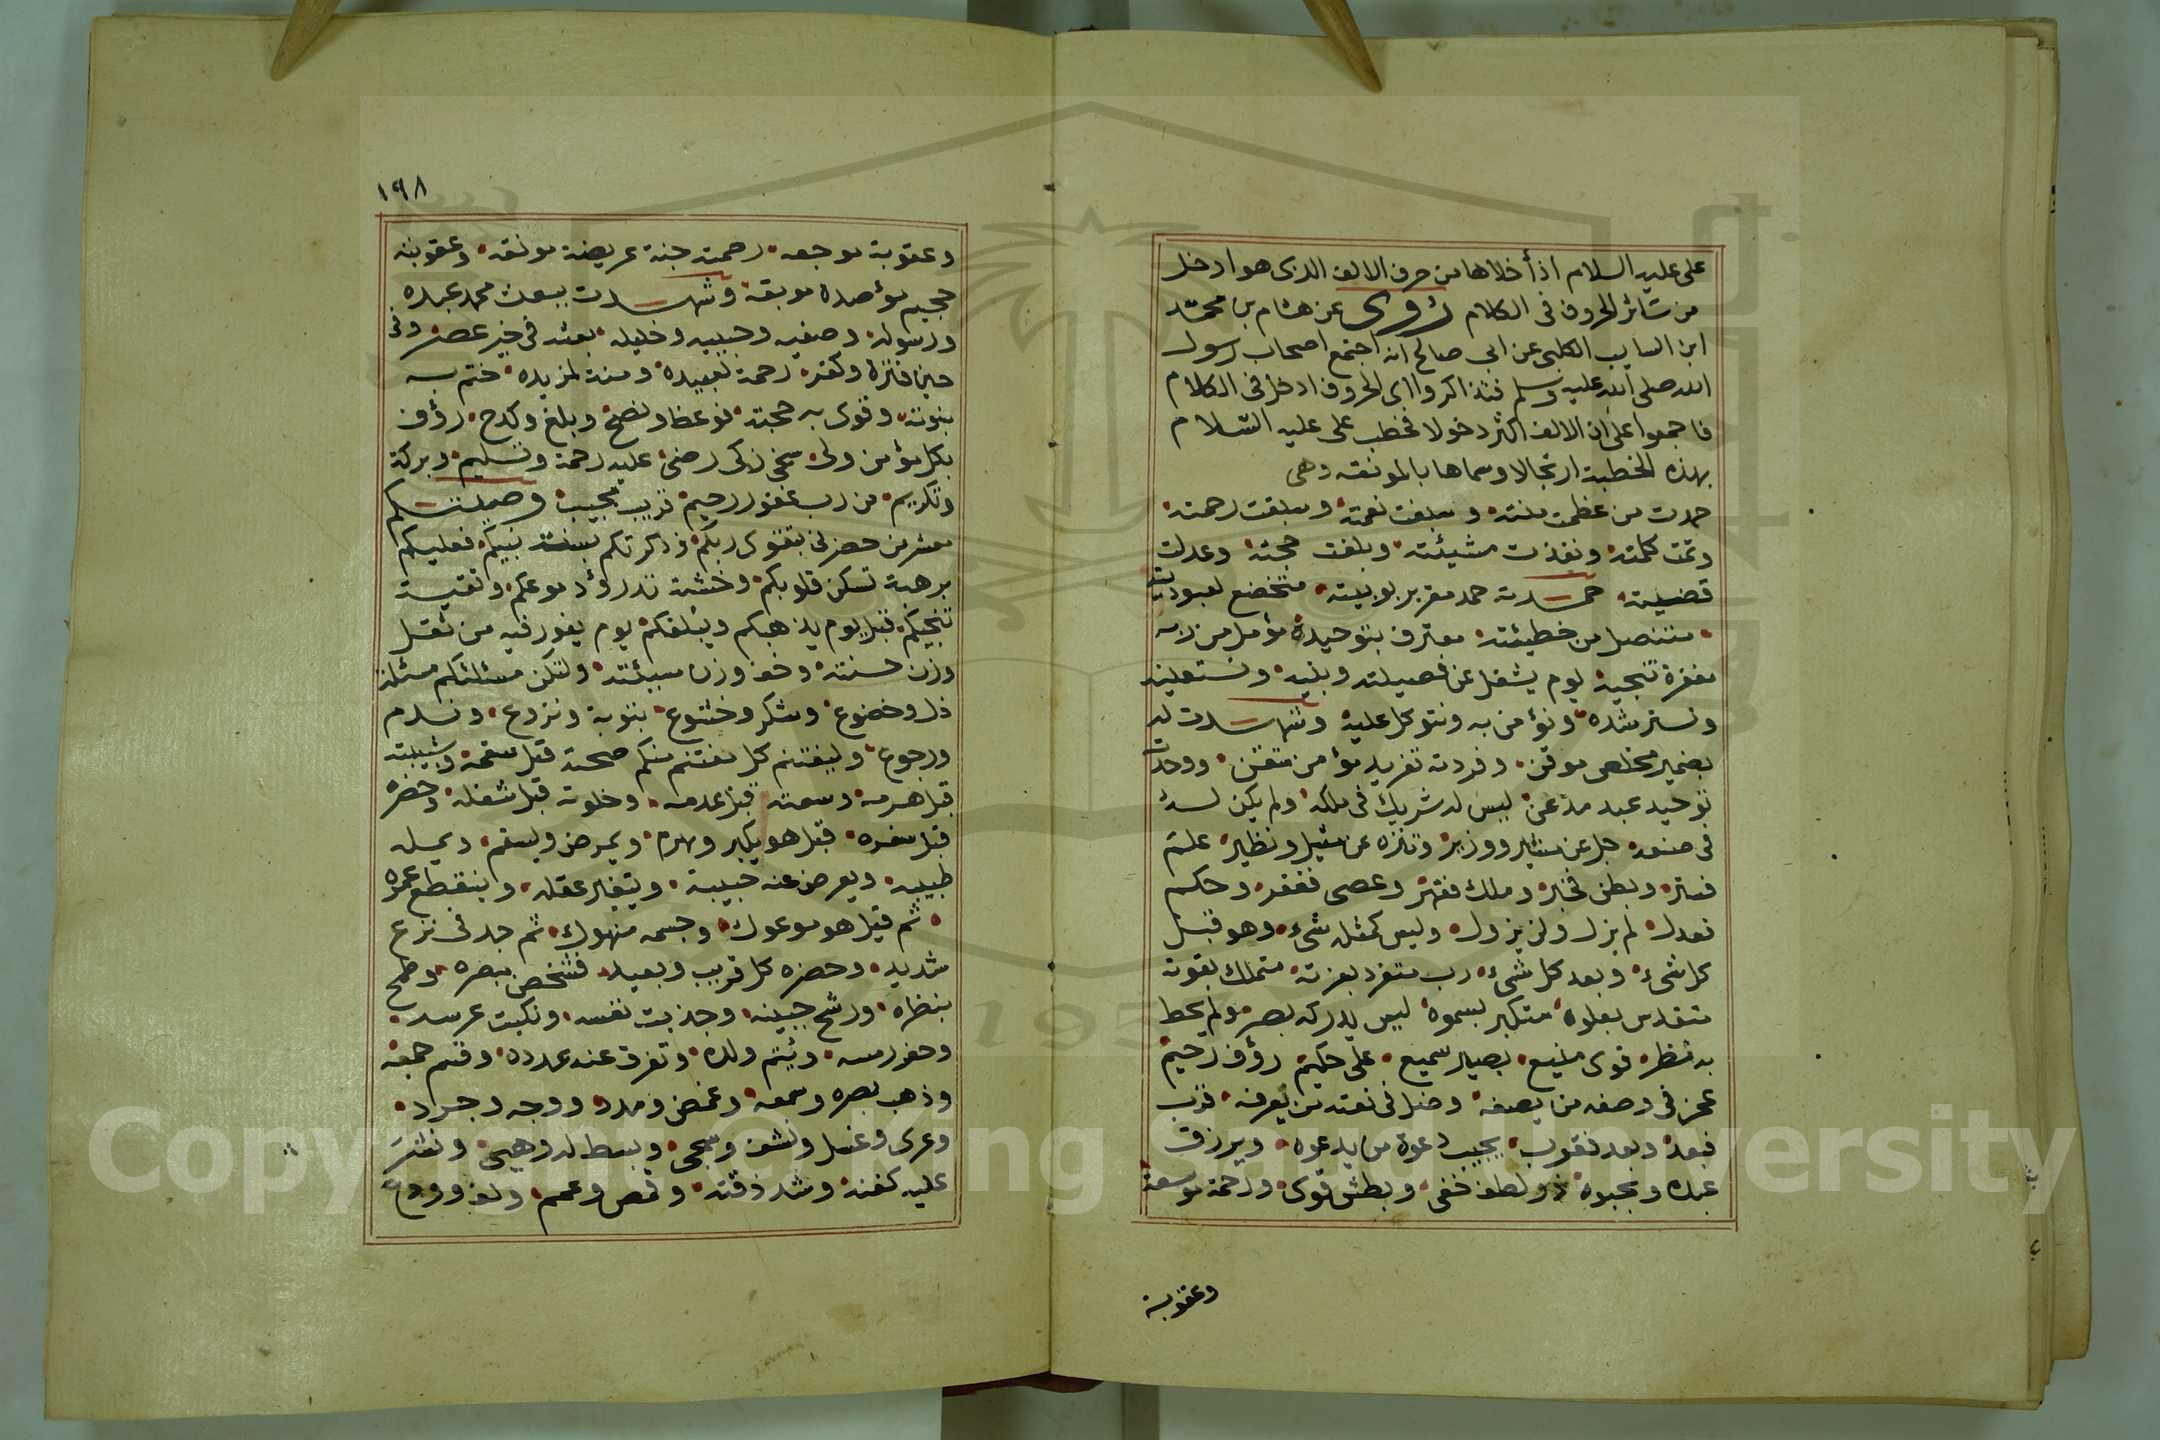 على عليه السلام اذ أخلاها من حرف الالف الذى هو ادخل
من سائر الحروف فى الكلام روى عن هشام بن محمد
ابن السايب الكلبى عن ابى صالح انه اجتمع اصحاب رسول
الله صلى الله عليه وسلم فتذاكروا اى الحروف ادخل فى الكلام
فاجمعوا على ان الالف اكثر دخولا فخطب على عليه السلام
بهذه الخطبة ارتجالا وسماها بالمونقه وهى
حمدت من عظمت منته وسبغت نعمته وسبقت رحمته
وتمت كلمته ونفذت مشيئته وبلغت حجته وعدلت
قضيته حمدته حمد مقر بربوبيته متخضع لعبوديته
متنصل من خطيئته معترف بتوحيده مؤمل من ربه
مغفرة تنجيه يوم يشغل عن فصيلته وبنيه ونستعينه
ونسترشده ونؤمن به ونتوكل عليه وشهدت له
بضمير مخلص موقن وفردته تفريد مؤمن متقن ووحدته
توحيد عبد مذعن ليس له شريك فى ملكه ولم يكن له
فى صنعه جل عن مشير ووزير وتنزه عن مثيل ونظير علم
فستر وبطن فخبر وملك فقهر وعصى فغفر وحكم
فعدل لم يزل ولن يزول وليس كمثله شىء وهو قبل
كل شىء وبعد كل شىء رب متفرد بعزته متملك بقوته
متقدس بعلوه متكبر بسموه ليس يدركه بصر ولم يحط
به نظر قوى منيع بصير سميع على حكيم رؤف رحيم
عجز فى وصفه من يصفه وضل فى نعته من يعرفه قرب
فبعد وبعد فقرب يجيب دعوة من يدعوه ويرزق
عبده ويحبوه ذو لطف خفى وبطش قوى ورحمة موسعة
وعقوبة
١٩٨
وعقوبة موجعه رحمته جنة عريضة مونقه وعقوبته
جحيم مؤصدة موبقه وشهدت ببعث محمد عبده
ورسوله وصفيه وحبيبه وخليله بعثه فى خير عصر وفى
حين فترة وكفر رحمة لعبيده ومنة لمزيده ختم به
نبوته وقوى به حجته فوعظ ونصح وبلغ وكدح رؤف
بكل مؤمن ولى سخى زكى رضى عليه رحمة وتسليم وبركة
وتكريم من رب غفور رحيم قريب مجيب وصيتكم
معشر من حضرنى بتقوى ربكم وذكرتكم بسنة نبيكم فعليكم
برهبة تسكن قلوبكم وخشية تدرؤ دموعكم وتقية
تنجيكم قبل يوم يذهبكم ويبلغكم يوم يفوز فيه من ثقل
وزن حسنته وخف وزن سيئته ولتكن مسئلتكم مسئلة
ذل وخضوع وشكر وخشوع بتوبة ونزوع وندم
ورجوع وليغتنم كل مغتنم منكم صحته قبل سقمه وشبيبته
قبل هرمه وسعته قبل عدمه وخلوته قبل شغله وحضره
قبل سفره قبل هو يكبر ويهرم ويمرض ويسقم ويمله
طبيبه ويعرض عنه حبيبه ويتغير عقله وينقطع عمره
ثم قيل هو موعوك وجسمه منهوك ثم جد فى نزع
شديد وحضره كل قريب وبعيد فشخص ببصره وطمح
بنظره ورشح جبينه وجذبت نفسه ونكبت عرسه
وحفر رمسه ويتم ولده وتفرق عنه عدده وقسم جمعه
وذهب بصره وسمعه وغمض ومدد ووجه وجرد
وعرى وغسل ونشف وسجى وبسط له وهيئ ونشر
عليه كفنه وشد ذقنه وقمص وعمم ولف وودع